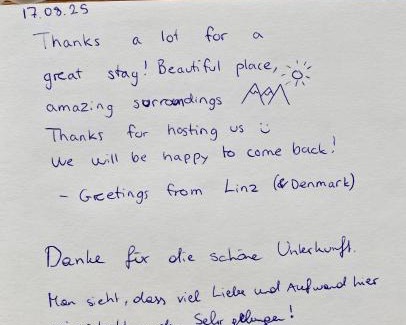 17.08.25
Thanks a lot for a
great stay! Beautiful place,
amazing surroundings
Thanks for hosting us ☺
We will be happy to come back!
- Greetings from Linz (& Denmark)
Danke für die schöne Unterkunft.
Man sieht, dass viel Liebe und Aufwand hier
Sehr gelungen!